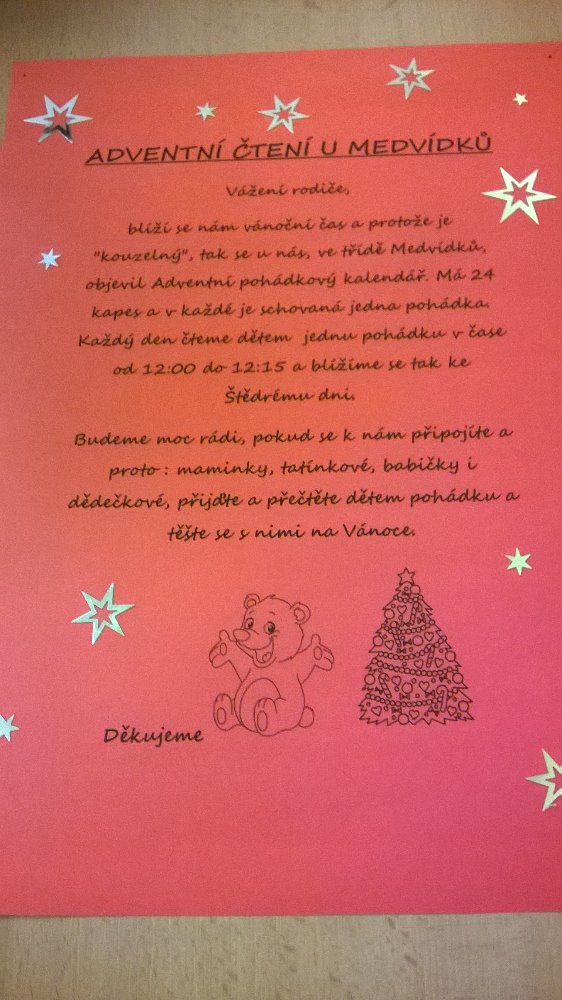 ADVENTNÍ ČTENÍ U MEDVÍDKŮ
Vážení rodiče,
blíží se nám vánoční čas a protože je
"kouzelný", tak se u nás, ve třídě Medvídků,
objevil Adventní pohádkový kalendář. Má 24
kapes a v každé je schovaná jedna pohádka.
Každý den čteme dětem jednu pohádku v čase
od 12:00 do 12:15 a blížíme se tak ke
Štědrému dni.
Budeme moc rádi, pokud se k nám připojíte a
proto : maminky, tatínkové, babičky i
dědečkové, přijďte a přečtěte dětem pohádku a
těšte se s nimi na Vánoce.
Děkujeme